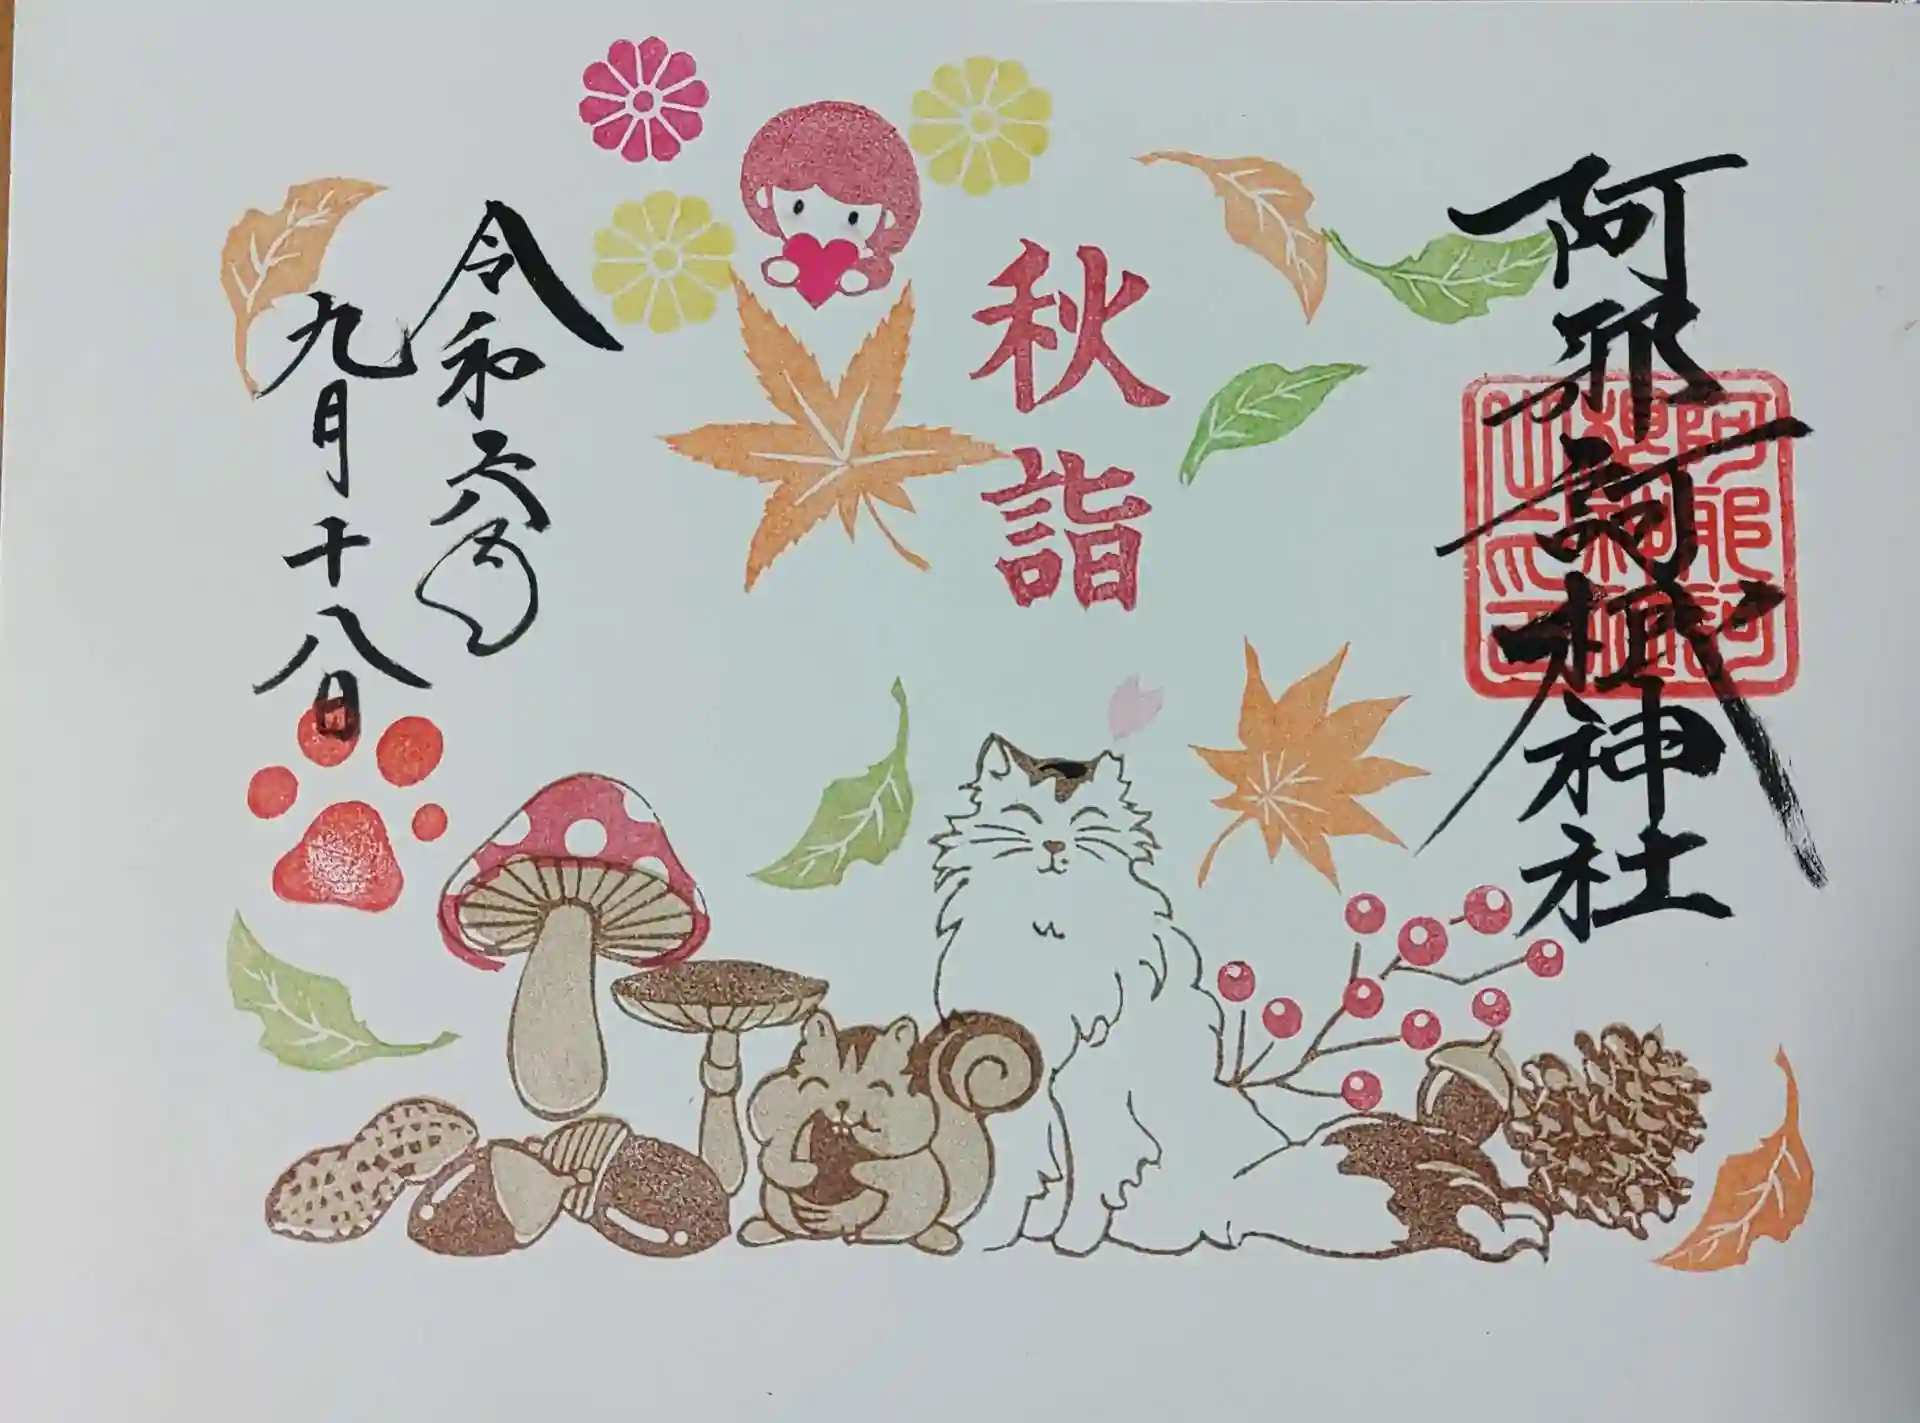 阿邪訶根神社
阿耶訶
根神社
之印
秋詣
令和六年
九月十八日